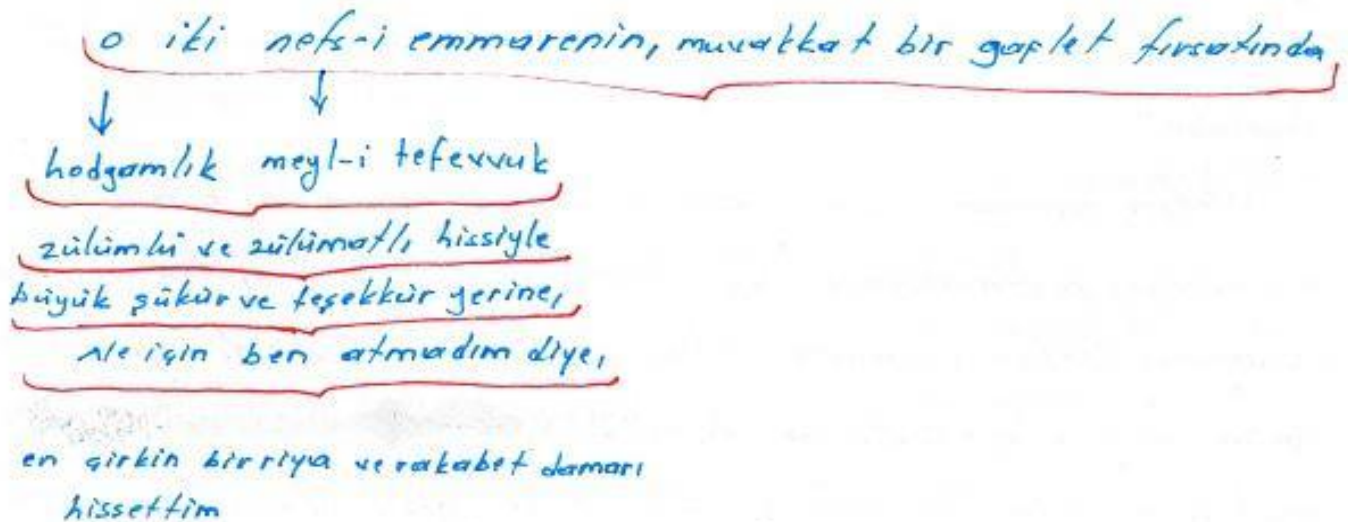 o iki nefs-i emmarenin, muvakkat bir gaflet fırsatında
hodgamlık meyl-i tefevvuk
zülümlü ve zülümatlı hissiyle
büyük şükür ve teşekkür yerine,
Ne için ben atmadım diye,
en çirkin bir riya ve rakabet damarı
hissettim